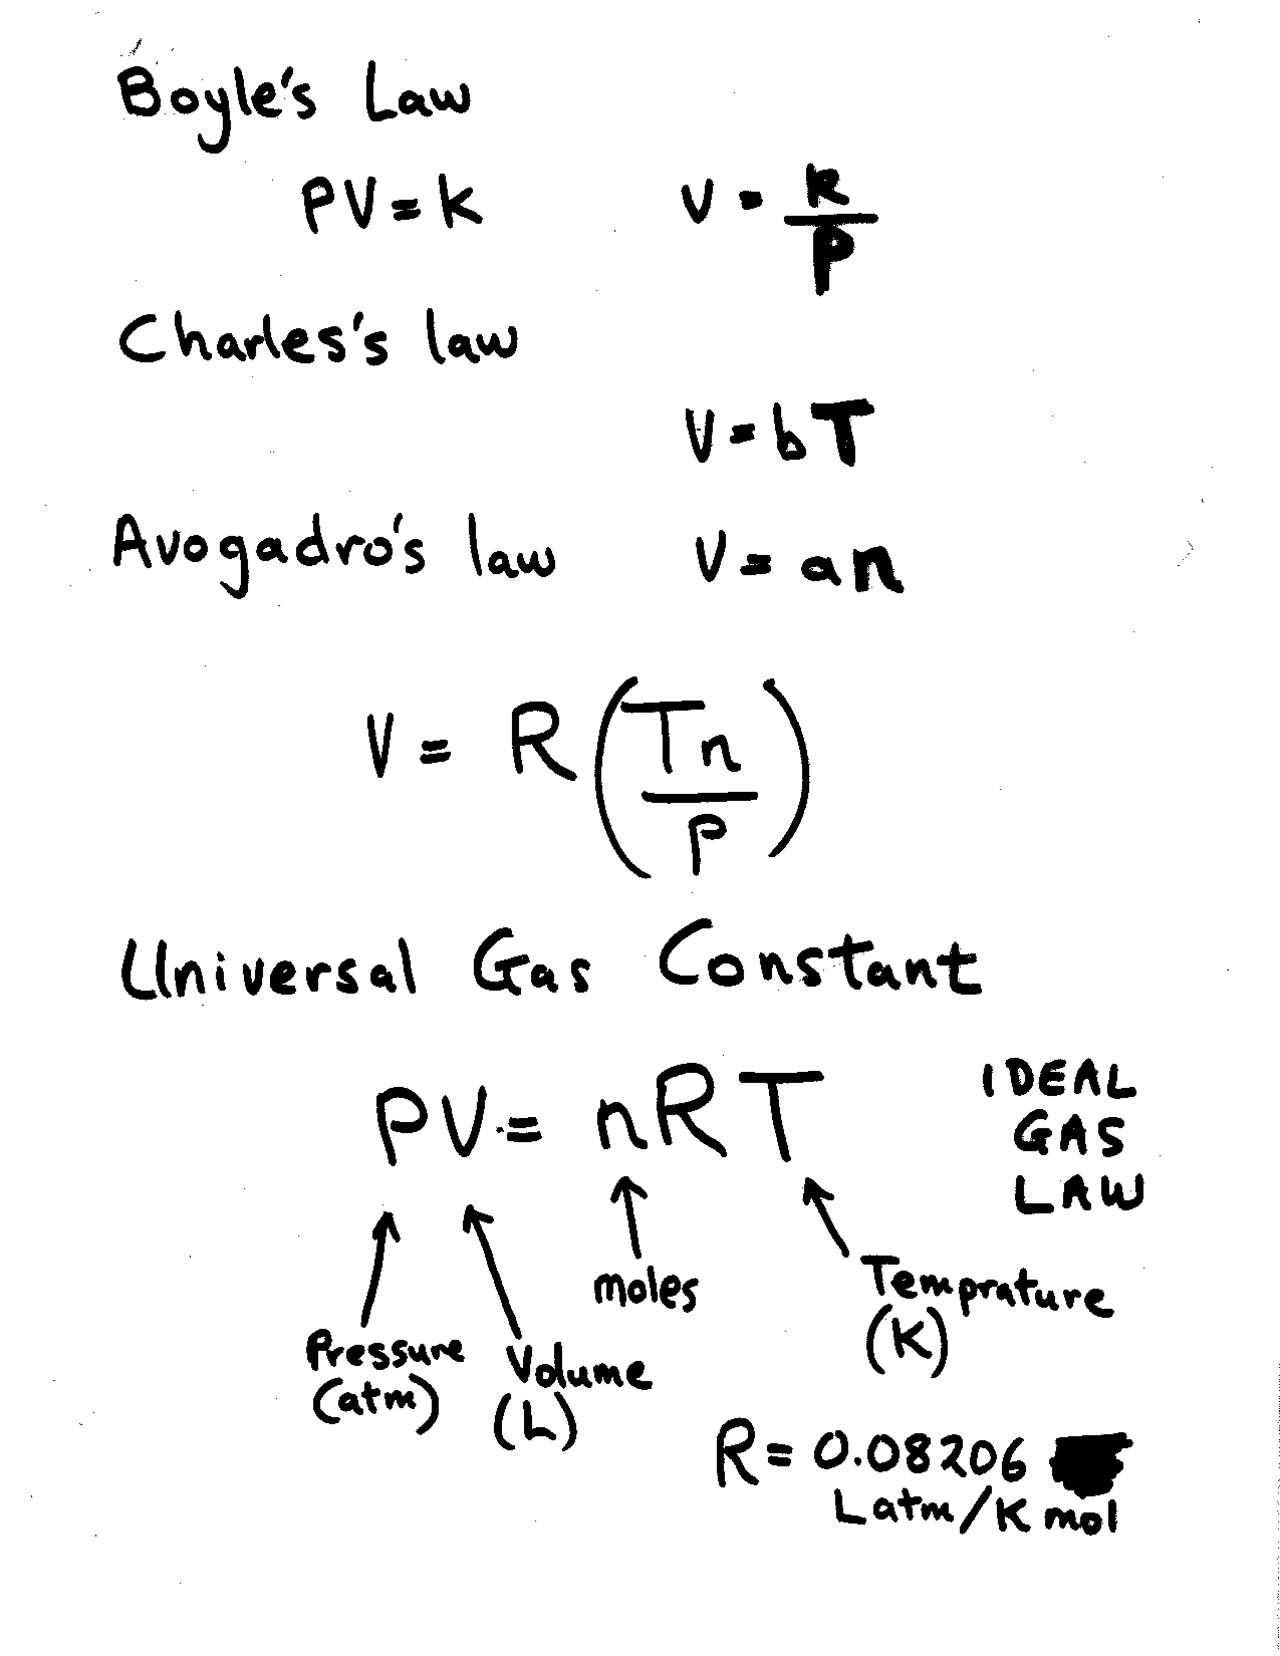 Boyle's Law
PV = k    V = k/P
Charles's law
V = bT
Avogadro's law    V = an
V = R(Tn/P)
Universal Gas Constant
PV = nRT    IDEAL
GAS
LAW
moles    Temprature
(K)
Pressure    Volume
(atm)    (L)
R = 0.08206
L atm/K mol